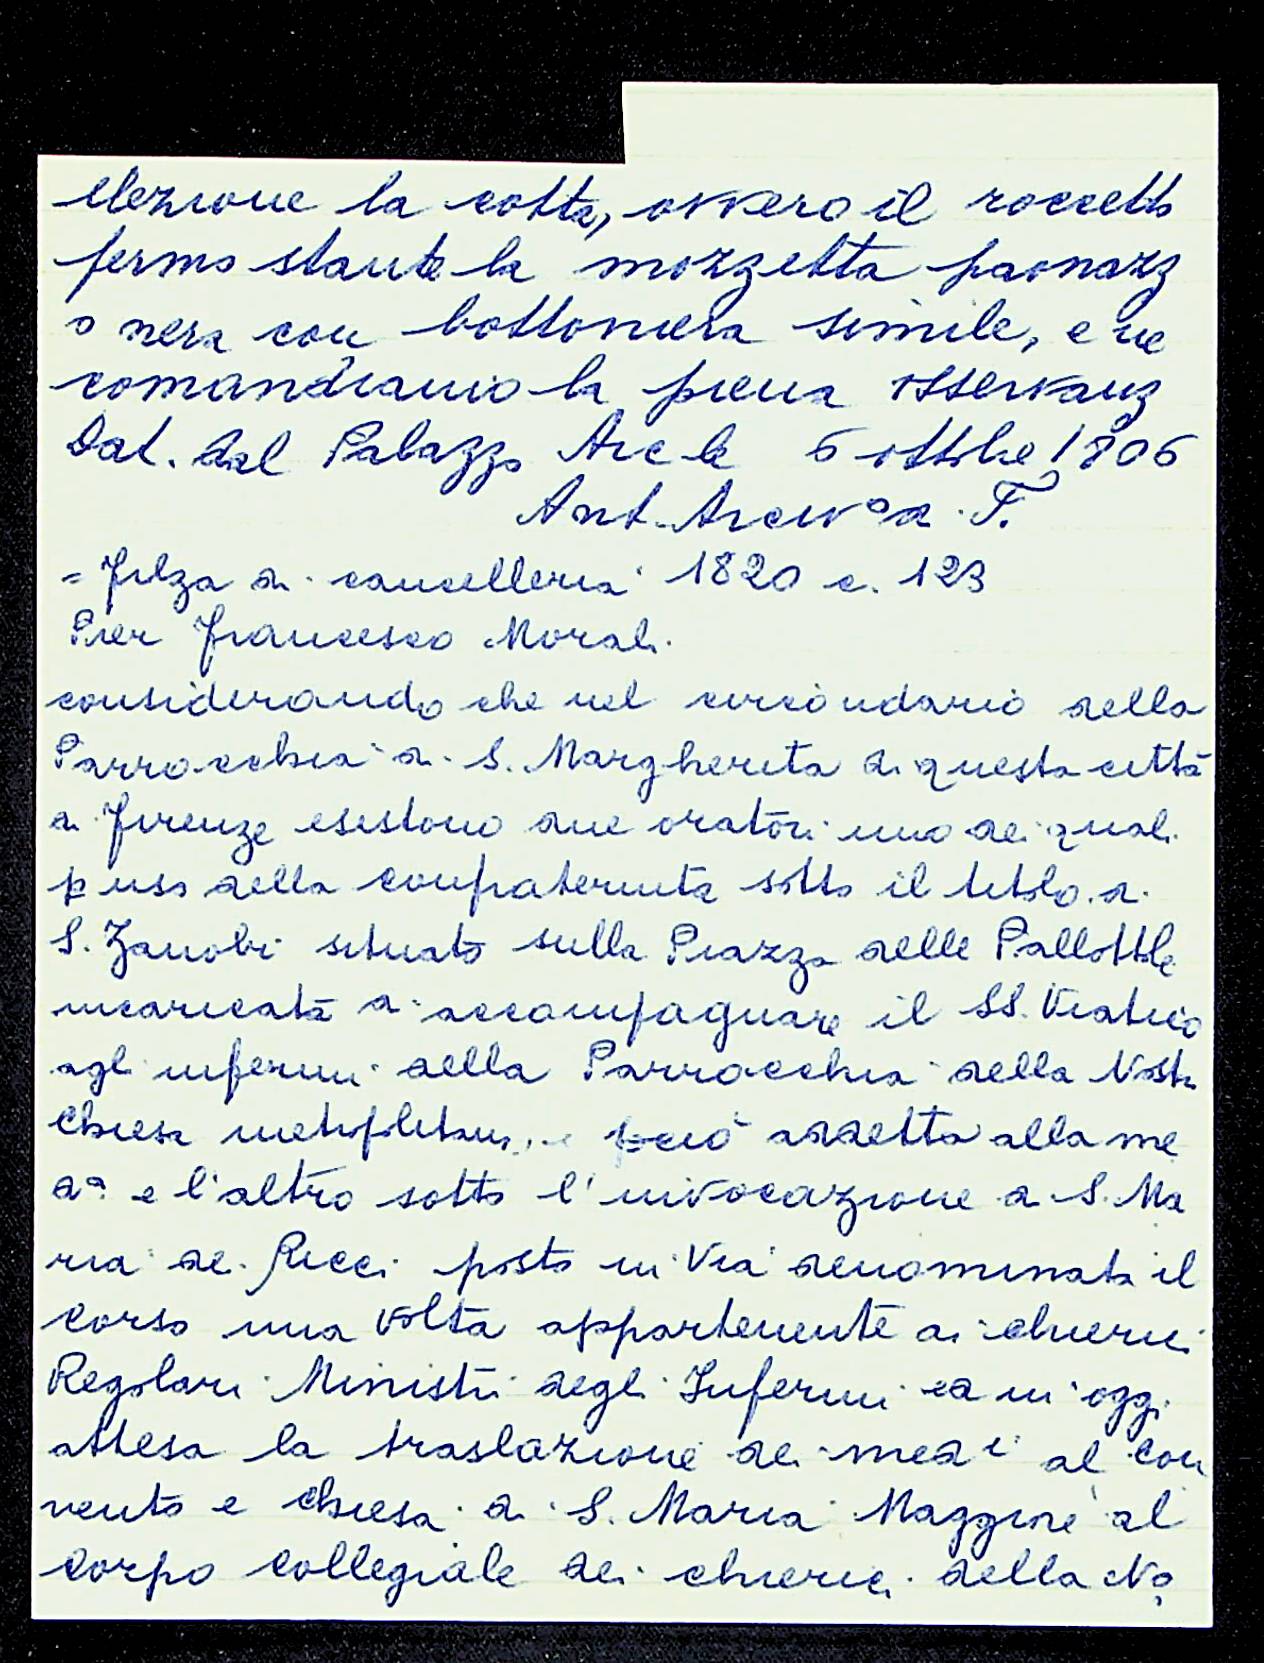 elezione la cotta, ovvero il roccetto
fermo stante la mozzetta paonazz
o nera con bottoniera simile, e ne
comandiamo la piena osservanz
Dat. dal Palazzo Arc le 6 ottbre 1806
Ant. Arciv° di F.
= Filza di cancelleria 1820 c. 123
Pier Francesco Morali.
considerando che nel circondario della
Parrocchia di S. Margherita di questa città
di Firenze esistono due oratori uno dei quali
p uso della confraternita sotto il titolo di
S. Zanobi situato sulla Piazza delle Pallottole
incaricata di accompagnare il SS. Viatico
agli infermi della Parrocchia della Nostra
Chiesa però addetta alla me
da e l'altro sotto l'invocazione di S. Ma
ria de' Ricci posto in Via denominata il
Corso una volta appartenente ai chierici
Regolari Ministri degli Infermi ed in oggi
attesa la traslazione dei med i al con
vento e chiesa di S. Maria Maggiore al
Corpo collegiale dei chierici della No